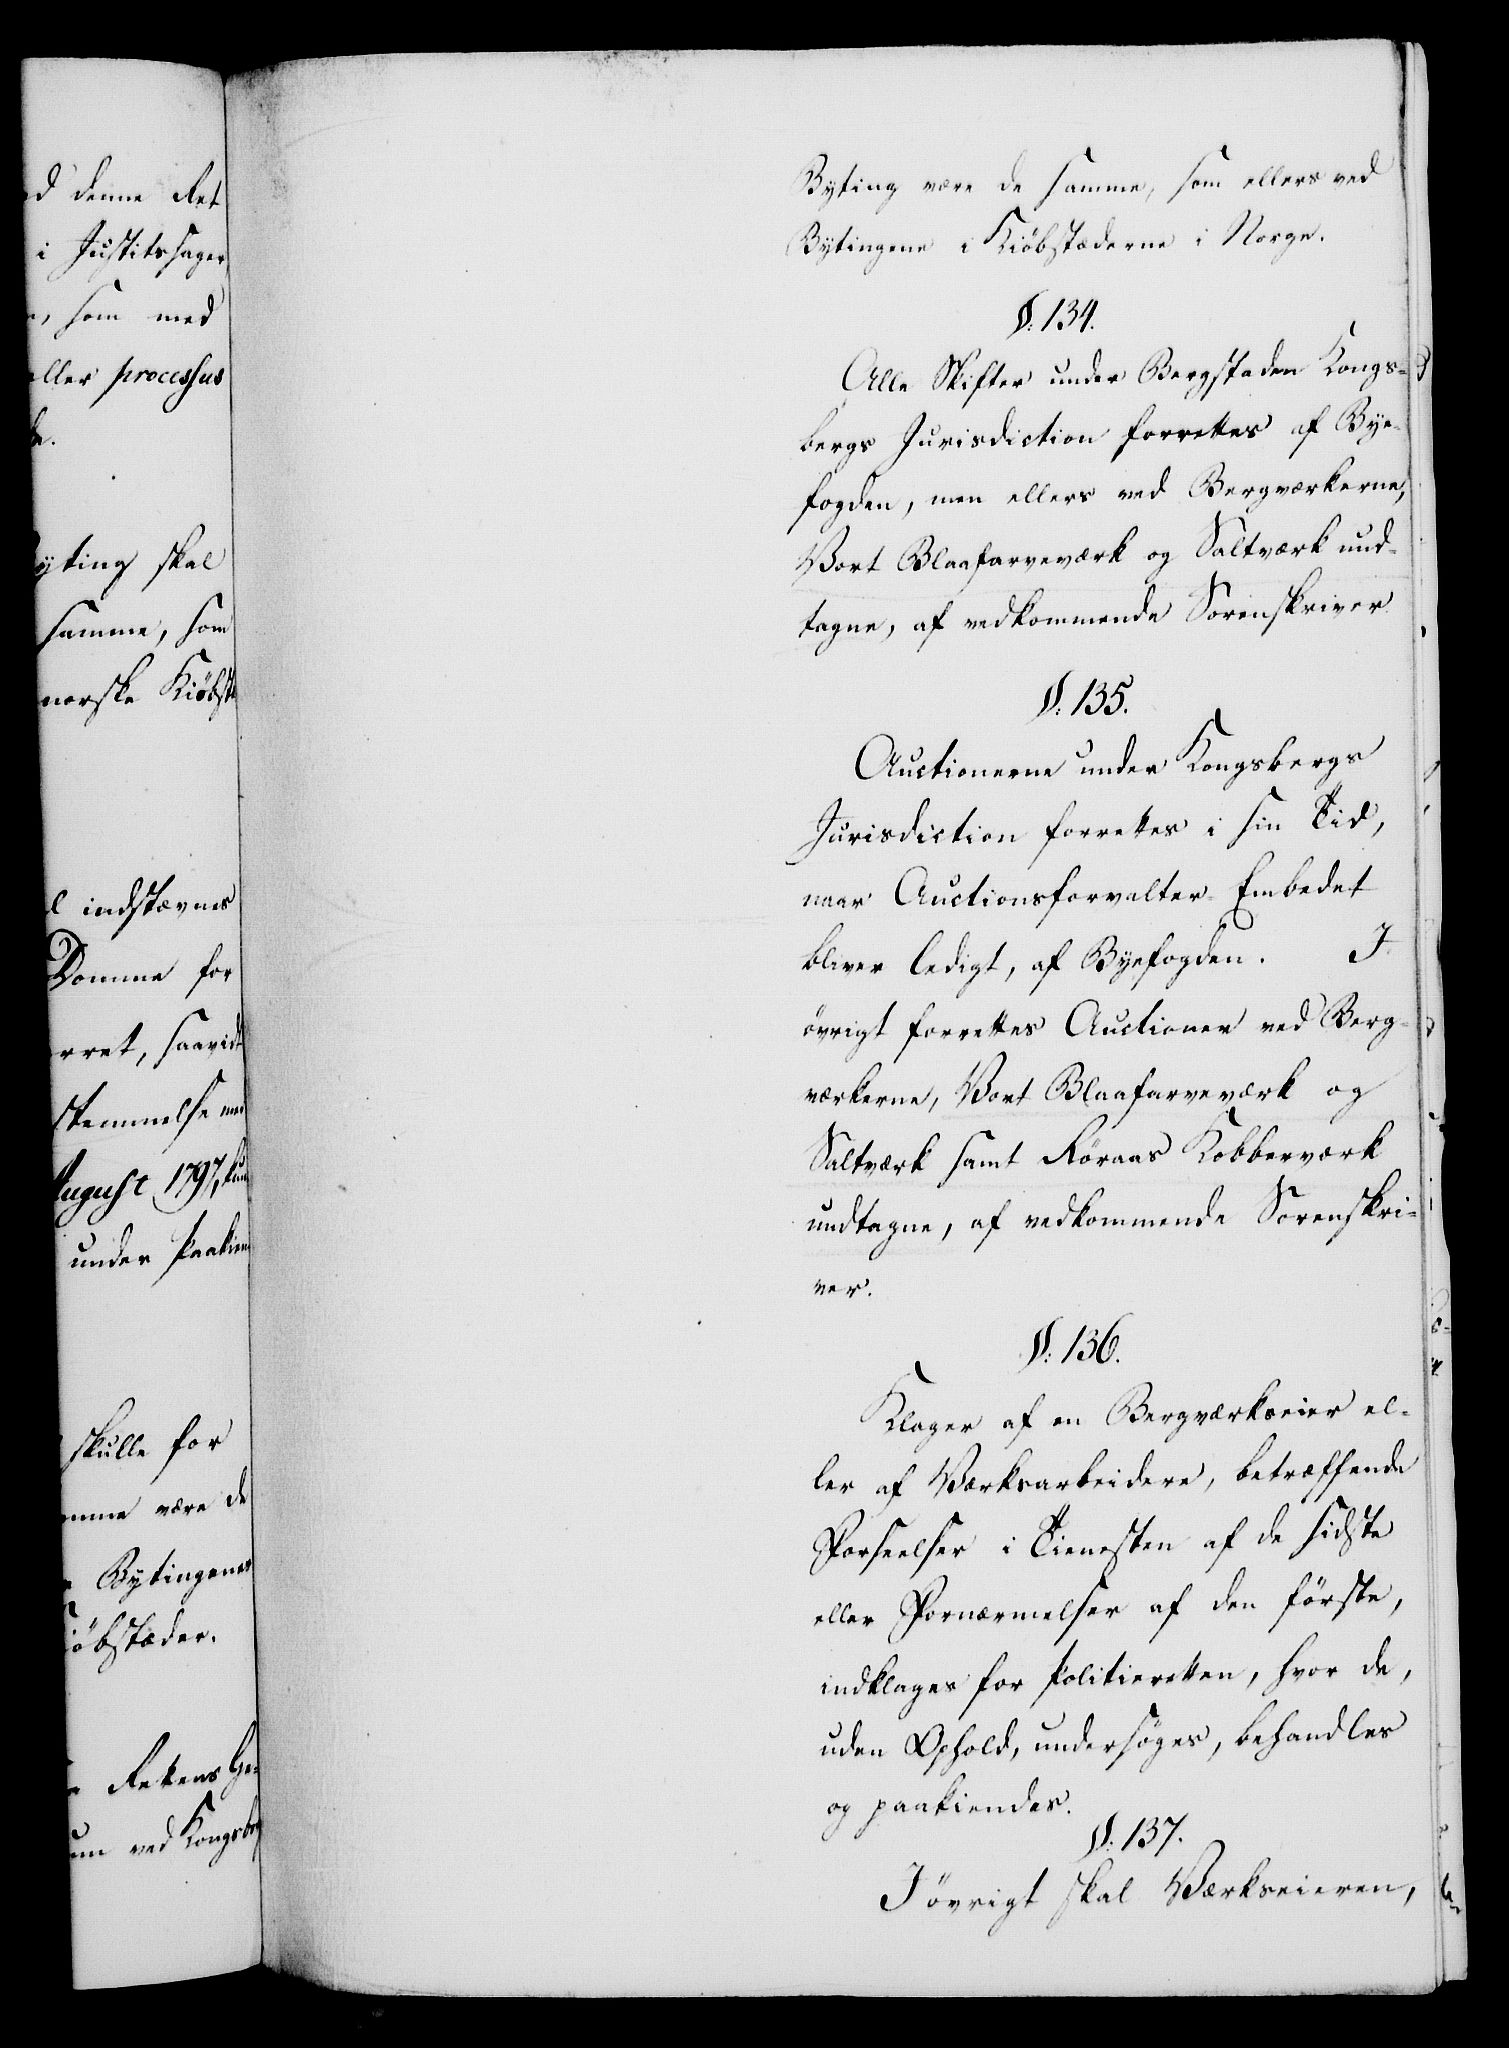 d denne Ret
i Justitssager,
, som med
eller processus
yting skal
samme, som
norske Kiöbst
indstævnes
Domme for
rret, saavidt
stemmelse med
August 1797, kun
under Paakien
skulle for
mme være de
Bytingenes
iöbstæder.
Rettens Ge=
um ved Kongsb
Byting være de samme, som ellers ved
Bytingene i Kiöbstæderne i Norge.
§: 134.
Alle Skifter under Bergstaden Kongs=
bergs Jurisdiction forrettes af Bye=
fogden, men ellers ved Bergværkerne,
Vort Blaafarveværk og Saltværk und=
tagne, af vedkommende Sorenskriver
§: 135.
Auctionerne under Kongsbergs
Jurisdiction forrettes i sin Tid,
naar Auctionsforvalter-Embedet
bliver ledigt, af Byefogden. I
övrigt forrettes Auctioner ved Berg=
værkerne, Vort Blaafarveværk og
Saltværk samt Röraas Kobberværk
undtagne, af vedkommende Sorenskri=
ver.
§: 136.
Klager af en Bergværkseier el=
ler af Værksarbeidere, betræffende
Forseelser i Tienesten af de sidste
eller Fornærmelser af den förste,
indklages for Politieretten, hvor de,
uden Ophold, undersöges, behandles
og paakiendes.
§: 137.
I övrigt skal Værkseieren,